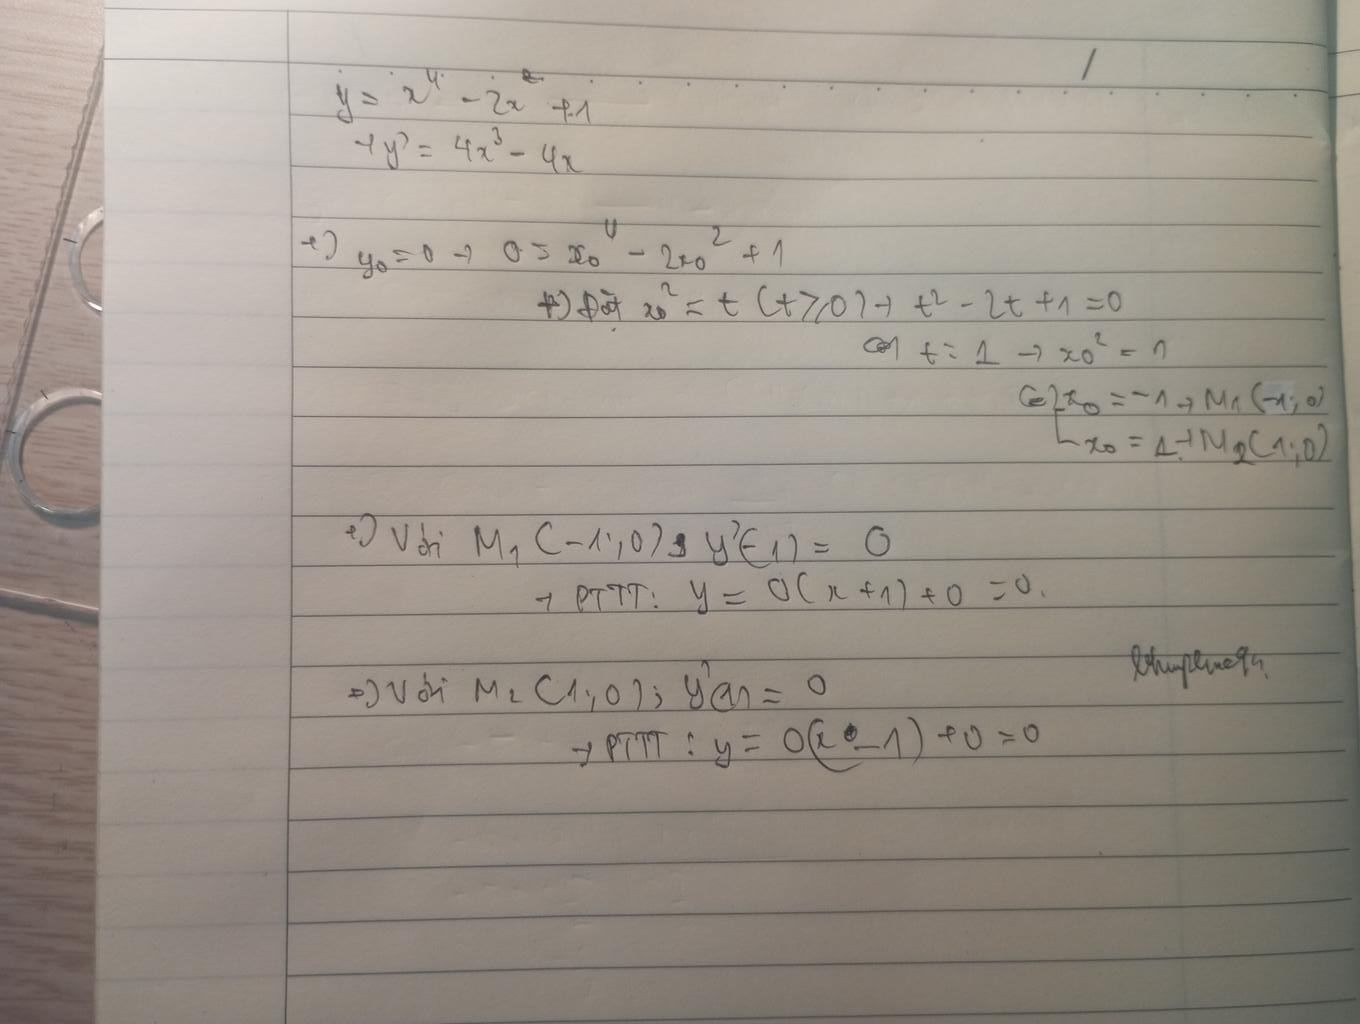 y = x⁴ - 2x² + 1
→ y' = 4x³ - 4x
+) y₀ = 0 → 0 = x₀⁴ - 2x₀² + 1
+) Đặt x₀² = t (t ≥ 0) → t² - 2t + 1 = 0
⇔ t = 1 → x₀² = 1
⇔ [ x₀ = -1 → M₁ (-1; 0)
x₀ = 1 → M₂ (1; 0)
+) Với M₁ (-1; 0); y'(-1) = 0
→ PTTT: y = 0(x + 1) + 0 = 0.
+) Với M₂ (1; 0); y'(1) = 0
→ PTTT: y = 0(x - 1) + 0 = 0